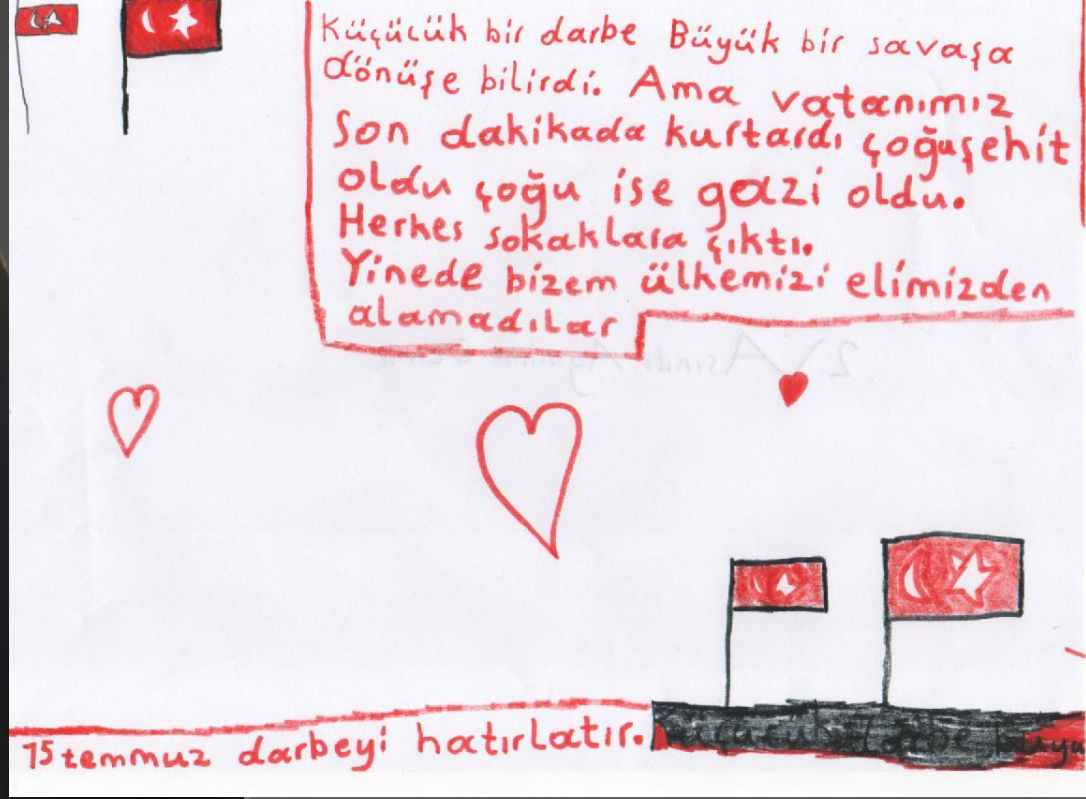 Küçücük bir darbe Büyük bir savaşa
dönüşe bilirdi. Ama vatanımız
Son dakikada kurtardı çoğuşehit
oldu çoğu ise gazi oldu.
Herkes sokaklara çıktı.
Yinede bizem ülkemizi elimizden
alamadılar
15 temmuz darbeyi hatırlatır.